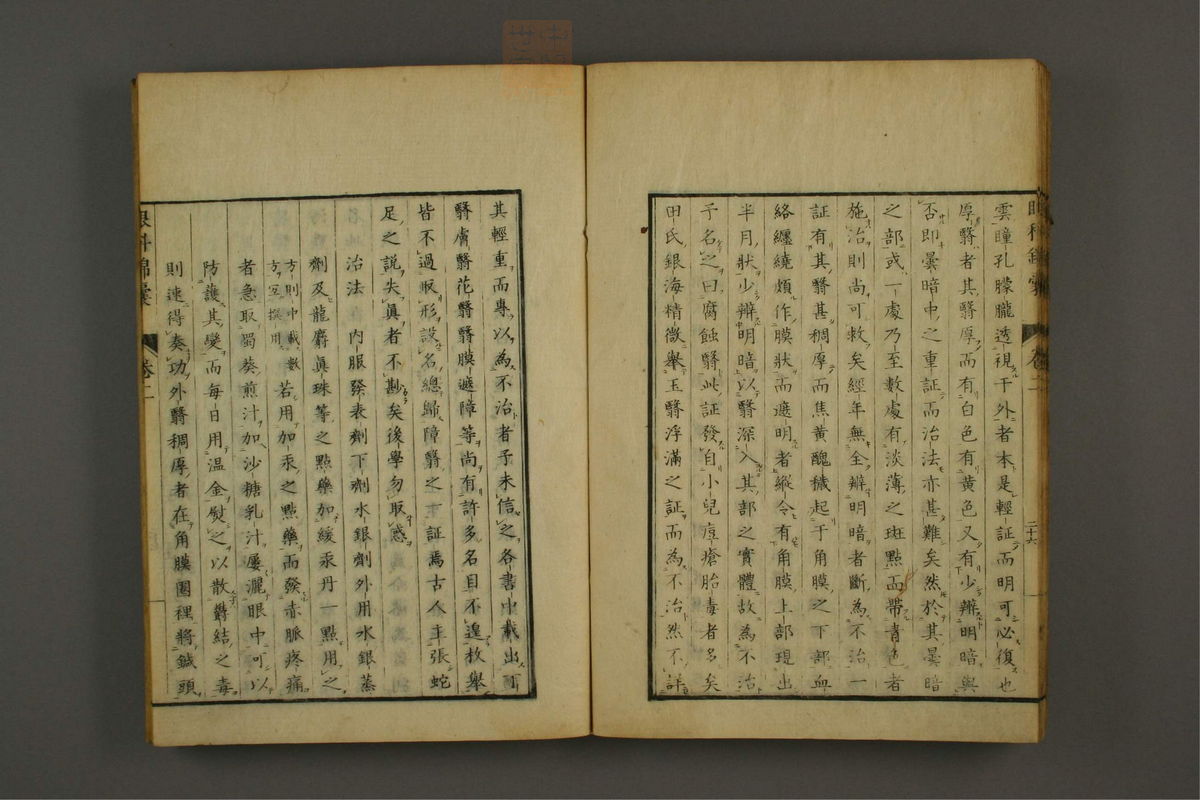 雲瞳孔朦朧透視于外者本是輕証而明可必復也
厚翳者其翳厚而有白色有黄色又有少辨明暗與
否即曇暗中之重証而治法亦甚難矣然於其曇暗
之部或一處乃至數處有淡薄之斑點而帶青色者
施治則尚可救矣經年無全辨明暗者斷為不治一
証有其翳甚稠厚而焦黄醜穢起于角膜之下部血
絡纏繞頗作膜狀而遮明者縱令有角膜上部現出
半月狀少辨明暗以翳深入其部之實體故為不治
予名之曰腐蝕翳此証發自小兒痘瘡胎毒者多矣
田氏銀海精微舉玉翳浮滿之証而為不治然不詳
眼科錦囊 卷二 二十六
其輕重而專以為不治者予未信之各書中載出
翳膚翳花翳翳膜遮障等尚有許多名目不遑枚舉
皆不過取形設名總歸障翳之一証焉古人主張蛇
足之說失眞者不尠矣後學勿取惑
治法 内服發表劑下劑水銀劑外用水銀蒸
劑及龍麝眞珠等之點藥加緩汞丹一點用之
方則中載數
方互撰用
若用加汞之點藥而發赤脈疼痛
者急取蜀葵煎汁加沙糖乳汁屢灑眼中可以
防護其變而每日用温金熨之以散欝結之毒
則速得奏功外翳稠厚者在角膜圍裡將鍼頭
眼科錦囊 卷二